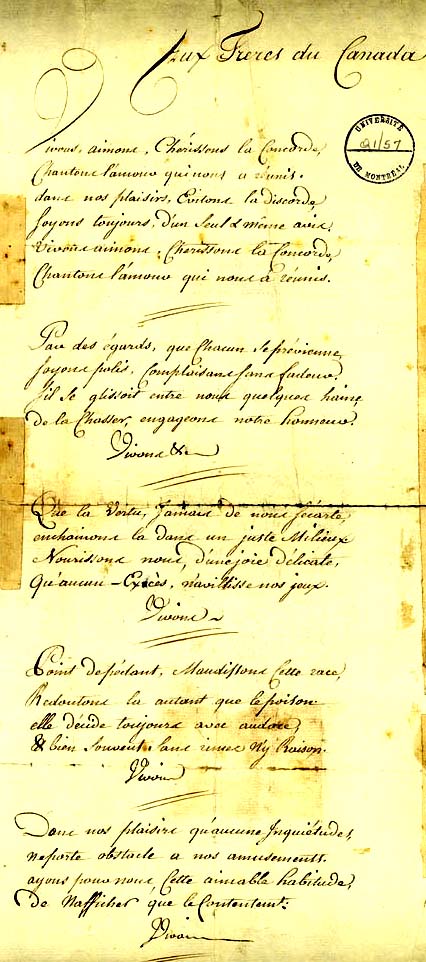 Aux Freres du Canada
UNIVERSITÉ
Q1/57
DE MONTRÉAL
Vivons, aimons, Chérissons la Concorde,
Chantons l'amour qui nous a réunis.
dans nos plaisirs, Evitons la discorde
soyons toujours, d'un seul & même avis,
Vivons aimons, Cherissons la Concorde,
Chantons l'amour qui nous à réunis.
Par des égards, que Chacun se prévienne,
soyons polis, Complaisans sans fadeur.
s'il se glissoit entre nous quelques haine,
de la Chasser, engageons notre honneur.
Vivons &c
Que la Vertu, Jamais de nous s'écarte,
enchainons la dans un juste Milieux
Nourissons nous, d'une joie délicate,
Qu'aucun Excès, n'avillisse nos jeux.
Vivons
Point de pédant, Maudissons Cette race,
Redoutons la autant que le poison
elle décide toujours avec audace,
& bien souvent sans rimes Ny Raison.
Vivons
Dans nos plaisirs qu'aucune Inquiétudes,
ne porte obstacle a nos amusements.
ayons pour nous, Cette aimable habitude,
de N'afficher que le Contentemt.
Vivons